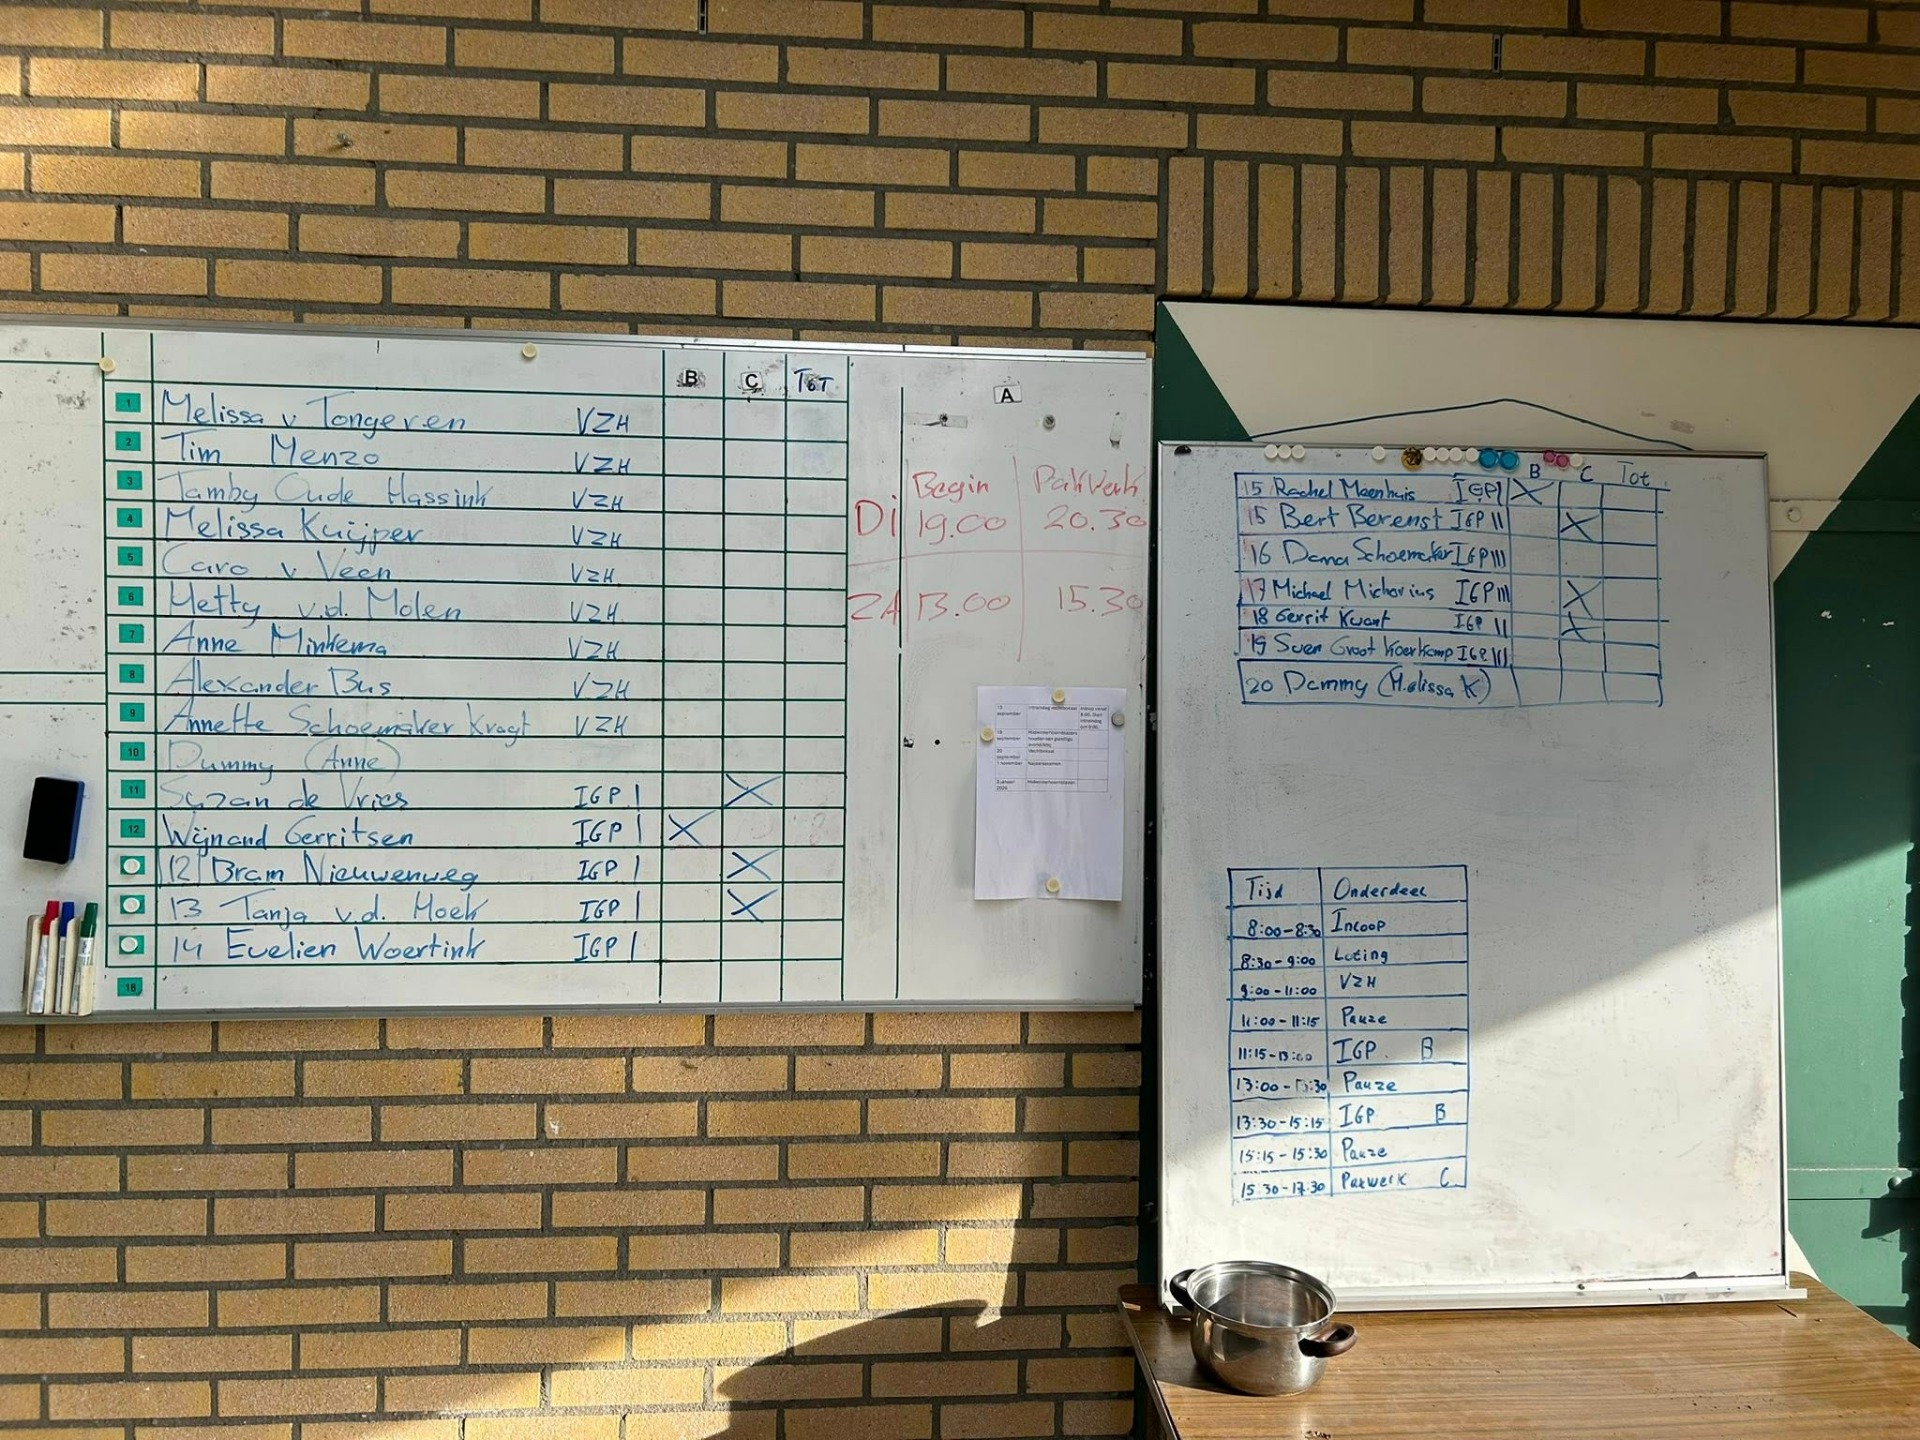 B C TOT
1 Melissa v Tongeren VZH
2 Tim Menzo VZH
3 Tamby Oude Hassink VZH
4 Melissa Kuijper VZH
5 Caro v Veen VZH
6 Hetty v.d. Molen VZH
7 Anne Minkema VZH
8 Alexander Bus VZH
9 Annette Schoemaker Kragt VZH
10 Dummy (Anne)
11 Suzan de Vries IGP I X
12 Wijnand Gerritsen IGP I X
12 Bram Nieuwenweg IGP I X
13 Tanja v.d. Hoek IGP I X
14 Evelien Woertink IGP I
A
Begin Pakwerk
Di 19.00 20.30
ZA 13.00 15.30
B C Tot
15 Rachel Meenhuis IGP I X
15 Bert Berenst IGP II X
16 Dana Schoemaker IGP III
17 Michael Michorius IGP III X
18 Gerrit Kwant IGP II X
19 Sven Groot Koerkamp IGP III
20 Dammy (Melissa K)
Tijd Onderdeel
8:00-8:30 Incoop
8:30-9:00 Loting
9:00-11:00 VZH
11:00-11:15 Pauze
11:15-13:00 IGP. B
13:00-13:30 Pauze
13:30-15:15 IGP B
15:15-15:30 Pauze
15:30-17:30 Pakwerk C